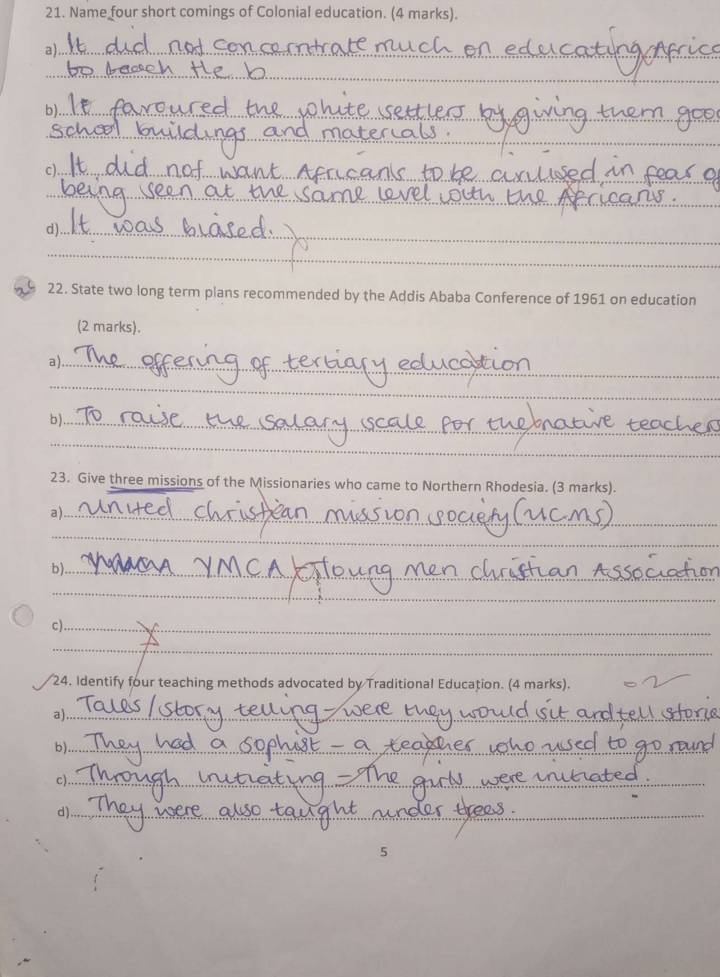 21. Name four short comings of Colonial education. (4 marks).
a) It did not concerntrate much on educating Africa
to teach the b
b) It favoured the white settlers by giving them good
school buildings and materials.
c) It did not want Africans to be civilised in fear of
being seen at the same level with the Africans.
d) It was biased.
22. State two long term plans recommended by the Addis Ababa Conference of 1961 on education
(2 marks).
a) The offering of tertiary education
b) To raise the salary scale for the native teachers
23. Give three missions of the Missionaries who came to Northern Rhodesia. (3 marks).
a) United christian mission society (UCMS)
b) YMCA Young men christian Association
c)
24. Identify four teaching methods advocated by Traditional Education. (4 marks). 02
a) Tales/story telling - were they would sit and tell storie
b) They had a sophist - a teacher who used to go round
c) Through initiating - The girls were initiated.
d) They were also taught under trees.
5